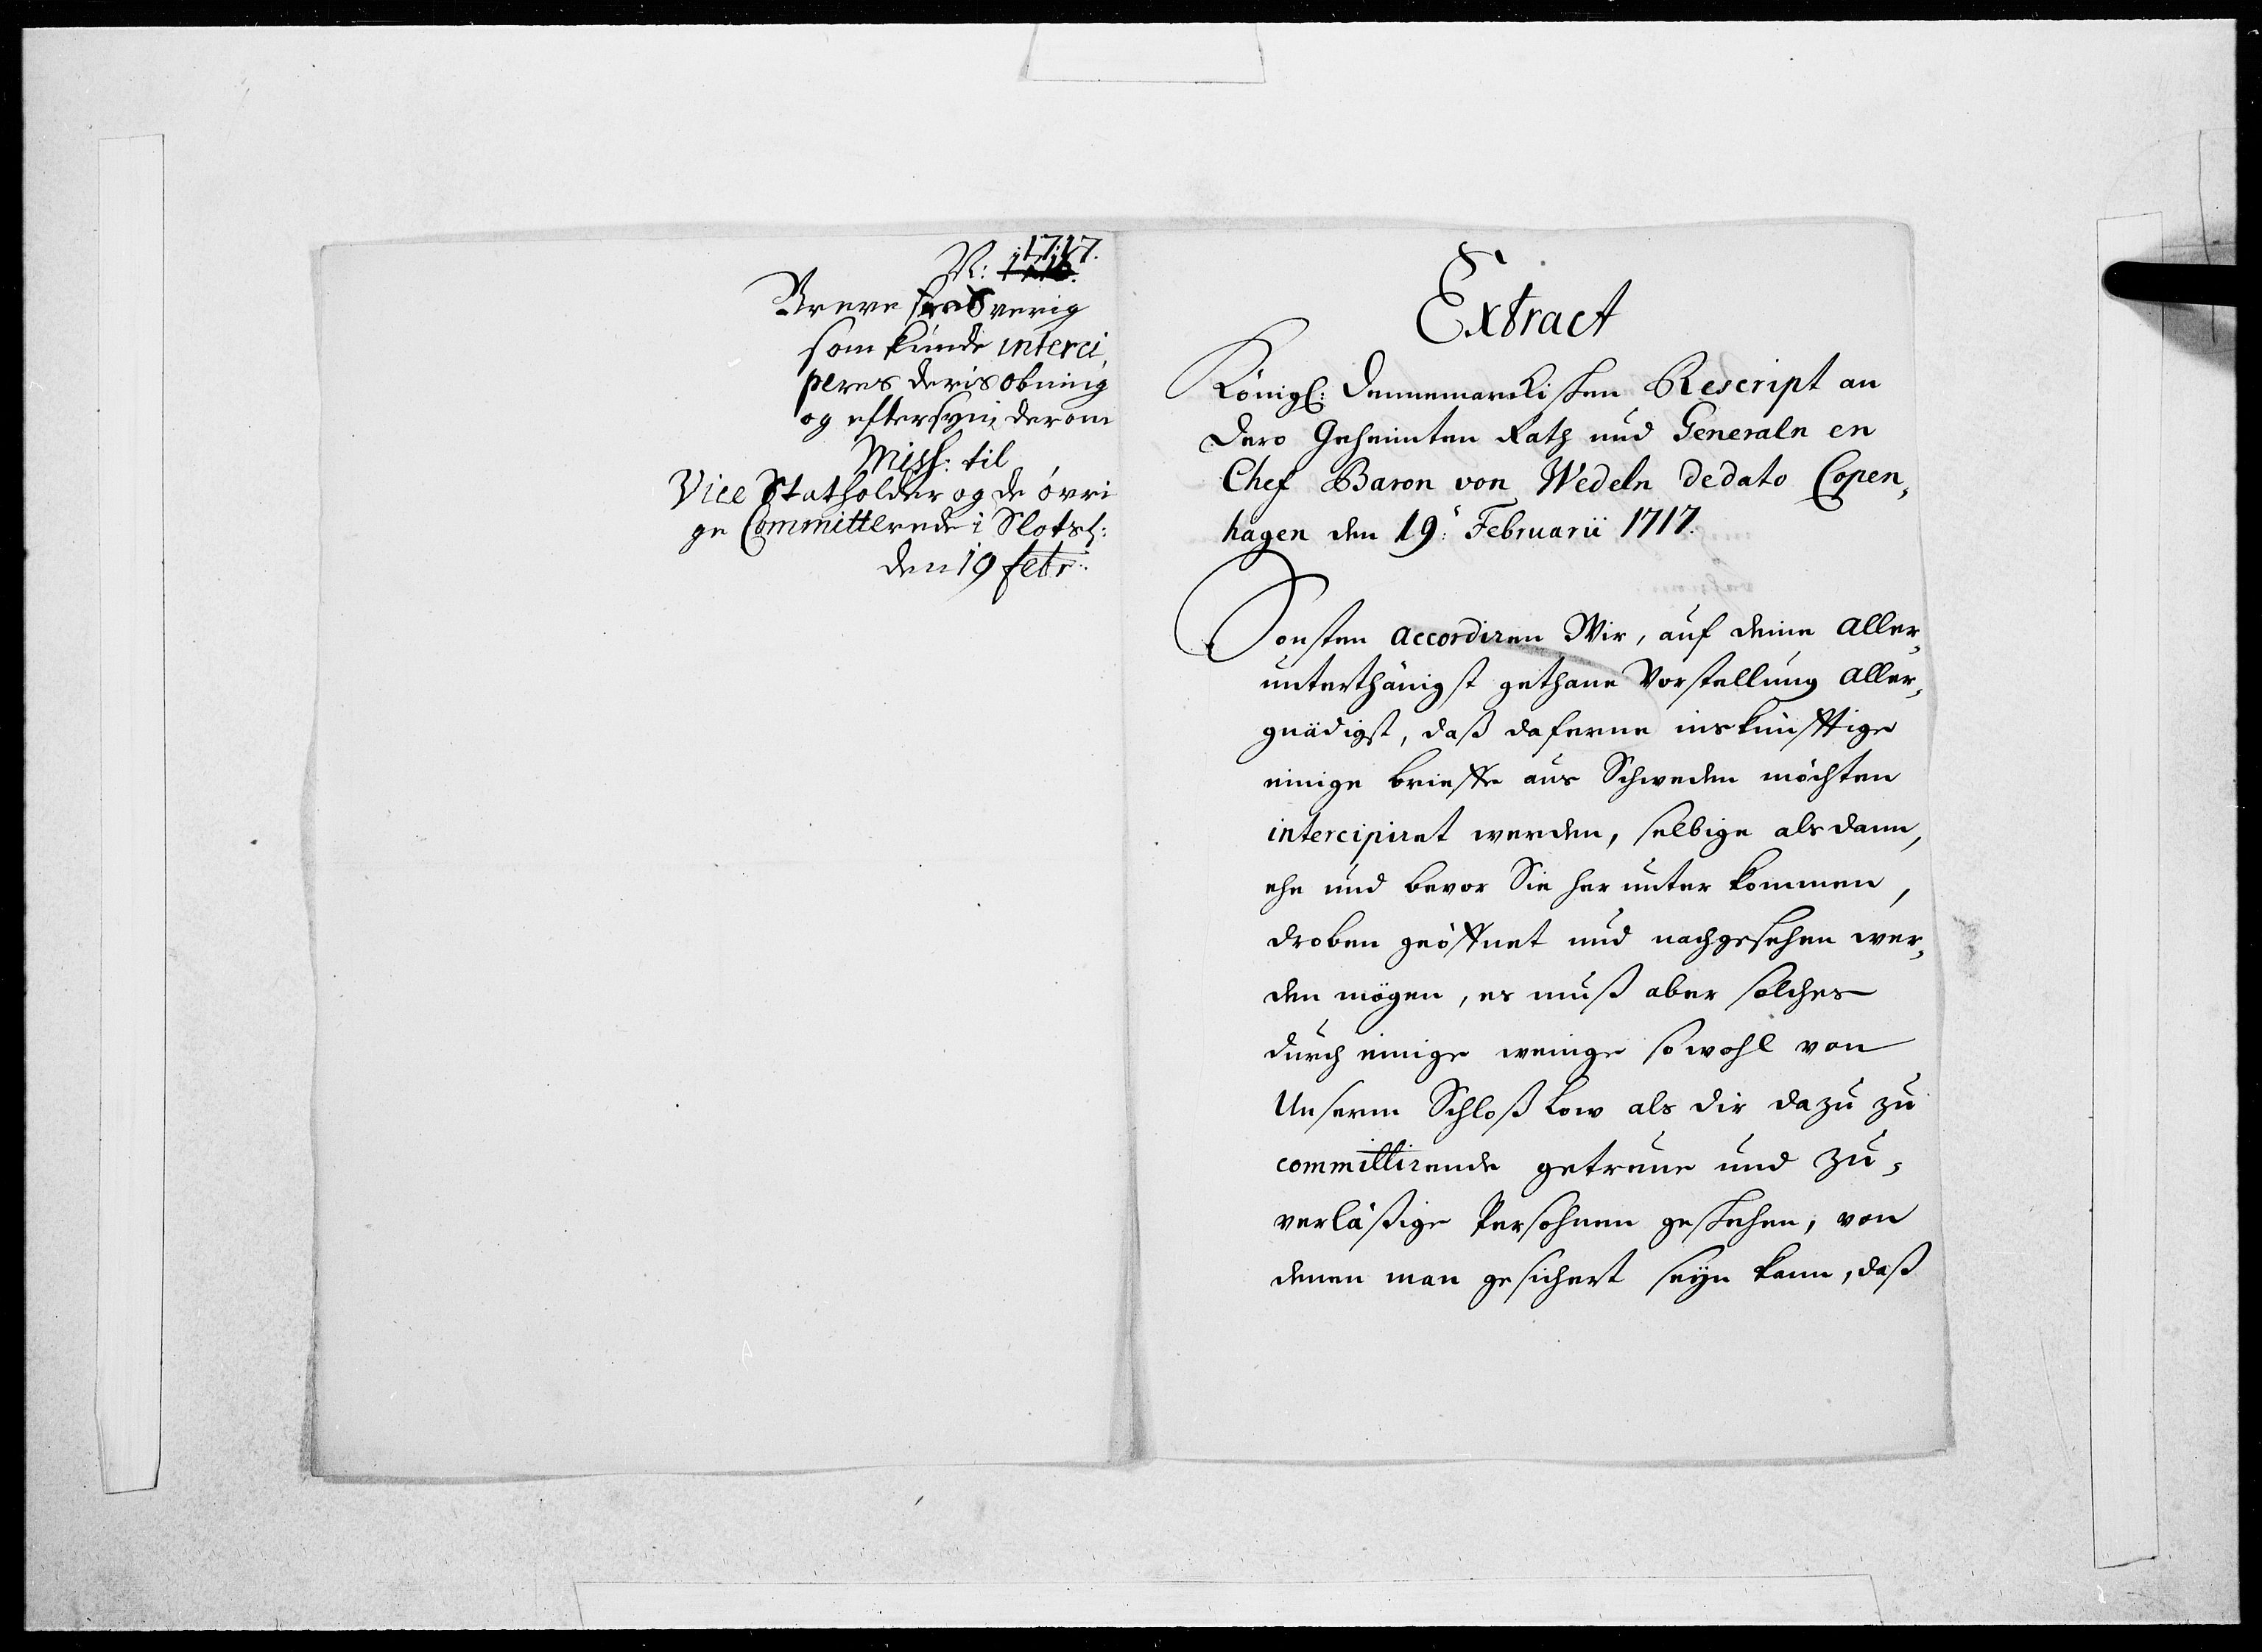 1717.
N: 1716.
Breve fra Sverig
som kunde interci¸
peres deris obning
og eftersyn, derom
Miss: til
Vice Statholder og de övri
ge Committerede i Slotsl:
den 19 febr:
Extract
Königl: Dennemarckischen Rescript an
dero Geheimten Rath und Generaln en
Chef Baron von Wedeln de dato Copen¸
hagen den 19: Februarii 1717.
Sonsten accordiren Wir, auf deine Aller¸
unterthänigst gethane Vorstellung Aller¸
gnädigst, daß daferne inskünfftige
einige brieffe aus Schweden möchten
intercipiret werden, selbige alsdann,
ehe und bevor Sie herunter kommen,
droben geöffnet und nachgesehen wer¸
den mögen, es muß aber solches
durch einige wenige so wohl von
Unserm Schloß Low als dir dazu zu
committirende getreue und zu¸
verläßige Persohnen geschehen, von
denen man gesichert seyn kann, daß